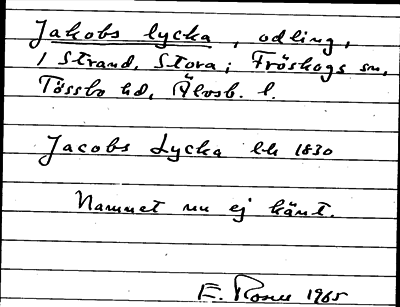 Jakobs lycka, odling,
i Strand, Stora; Fröskogs sn,
Tössbo hd, Älvsb. l.
Jacobs Lycka lh 1830
Namnet nu ej känt.
E. Rosell 1965